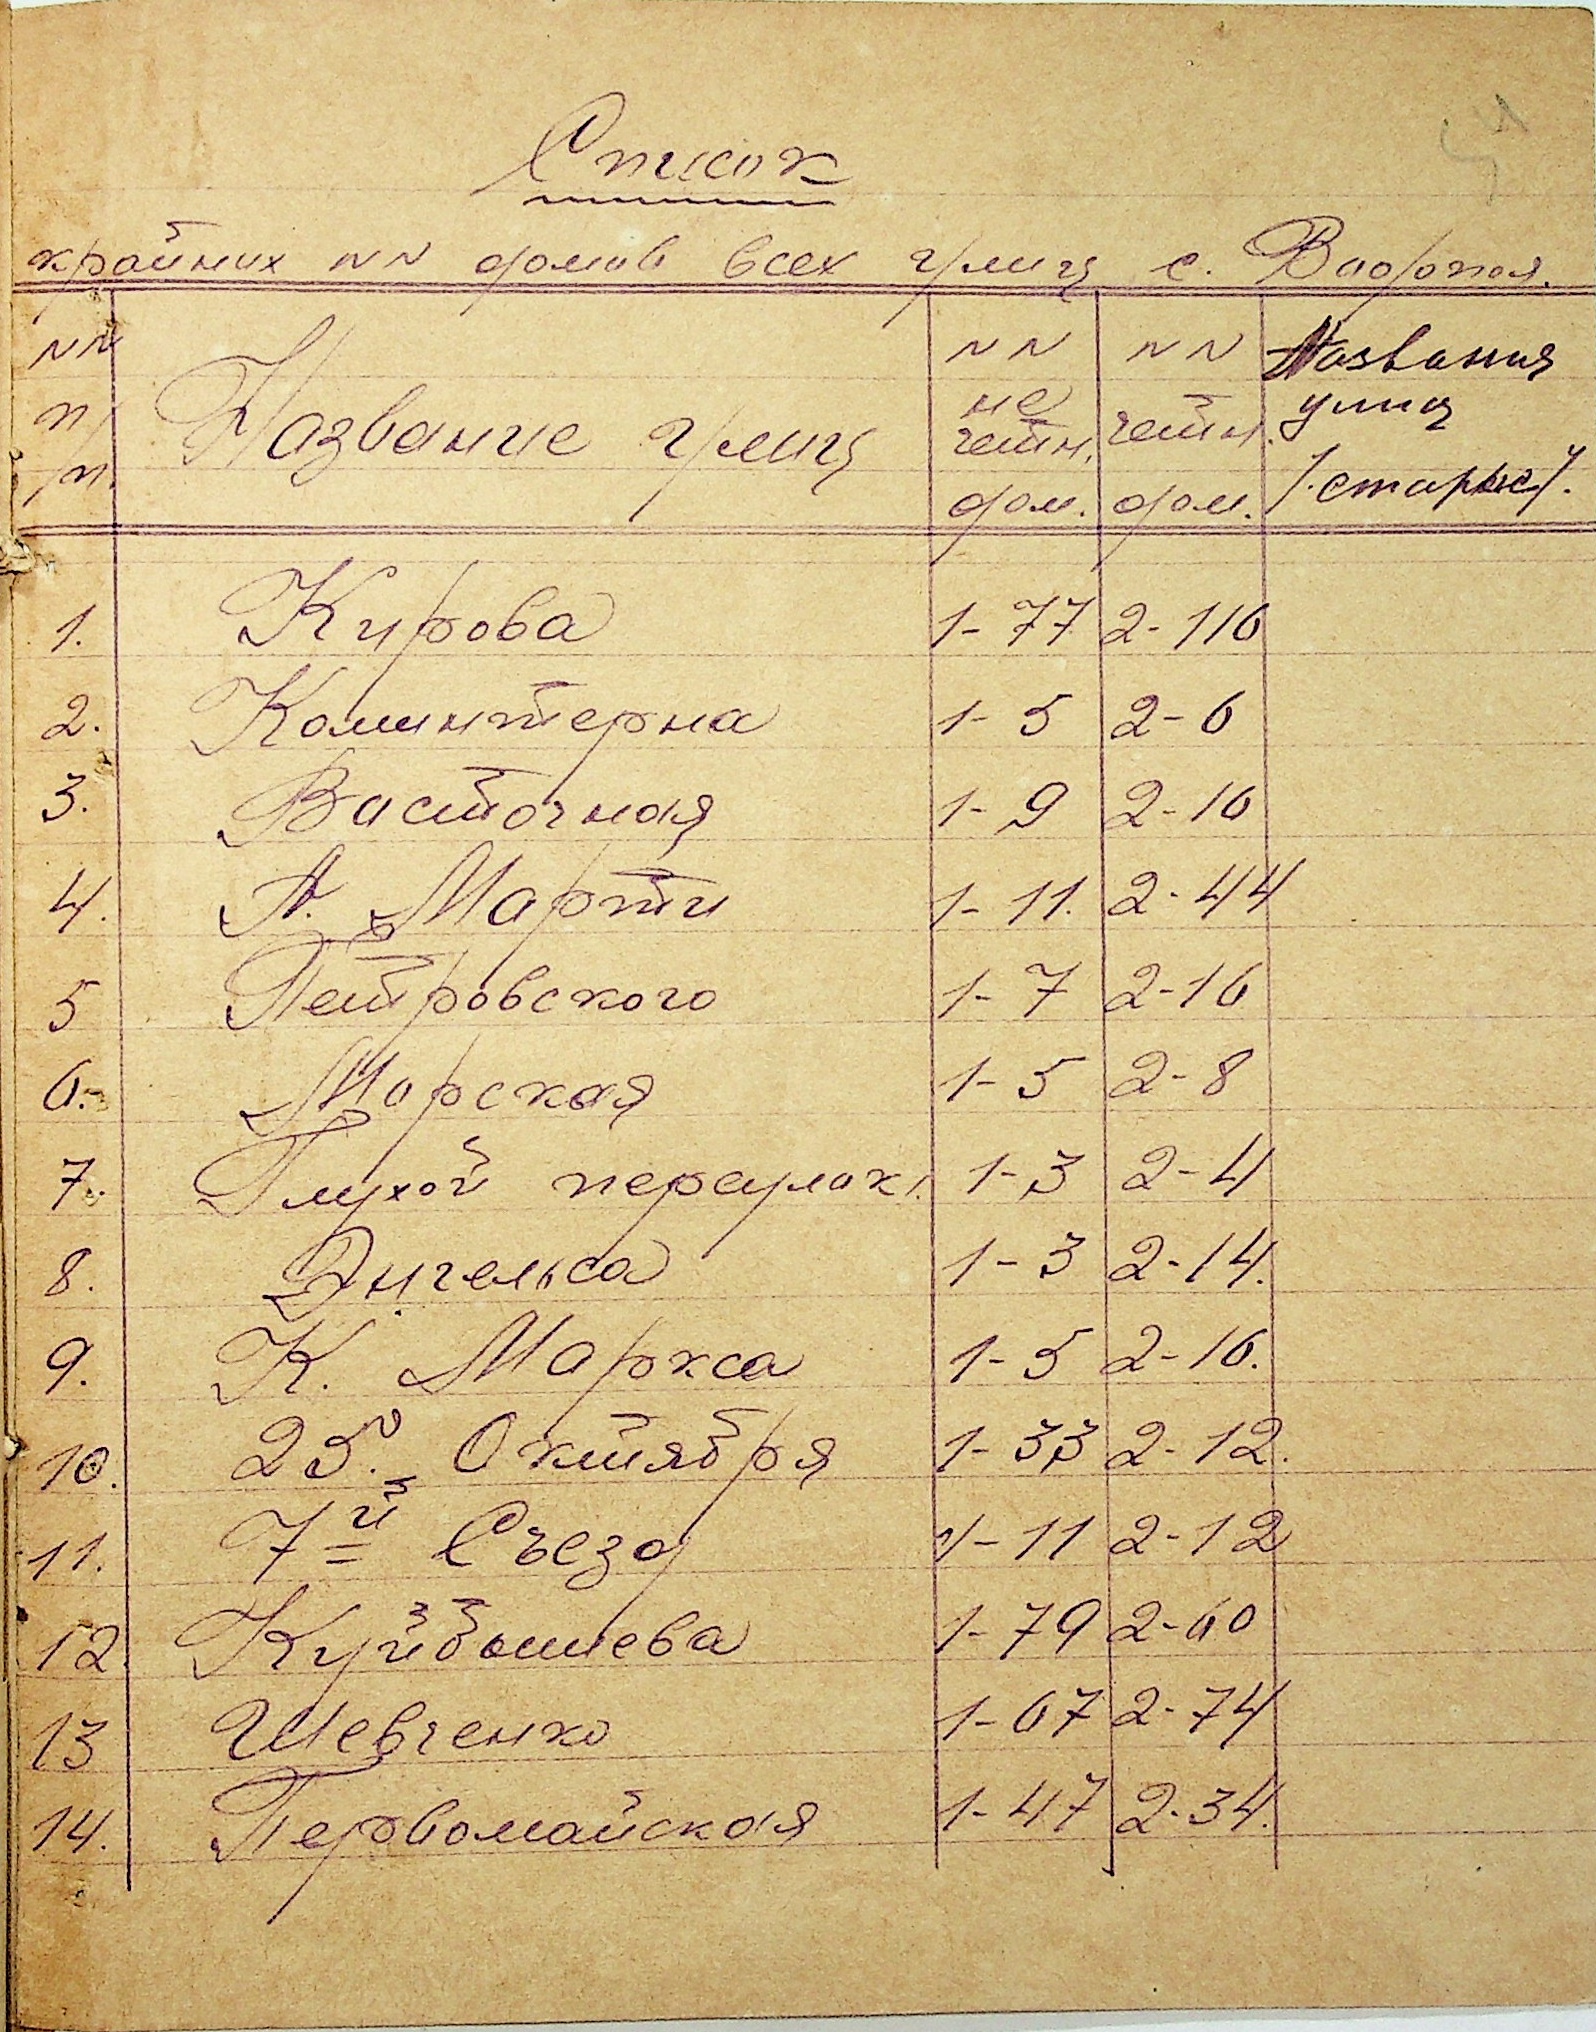 Список
крайних NN домов всех улиц с. Водопоя.
NN п/п. Название улиц NN не четн. дом. NN четн. дом. Названия улиц /.старые/.
1. Кирова 1-77 2-116
2. Коминтерна 1-5 2-6
3. Восточная 1-9 2-10
4. А. Марти 1-11. 2-44
5 Петровского 1-7 2-16
6. Морская 1-5 2-8
7. Глухой переулок. 1-3 2-4
8. Энгельса 1-3 2-14.
9. К. Маркса 1-5 2-16.
10. 25го Октября 1-33 2-12.
11. 7й Сьезд 1-11 2-12
12. Куйбышева 1-79 2-60
13 Шевченко 1-67 2-74
14. Первомайская 1-47 2-34.